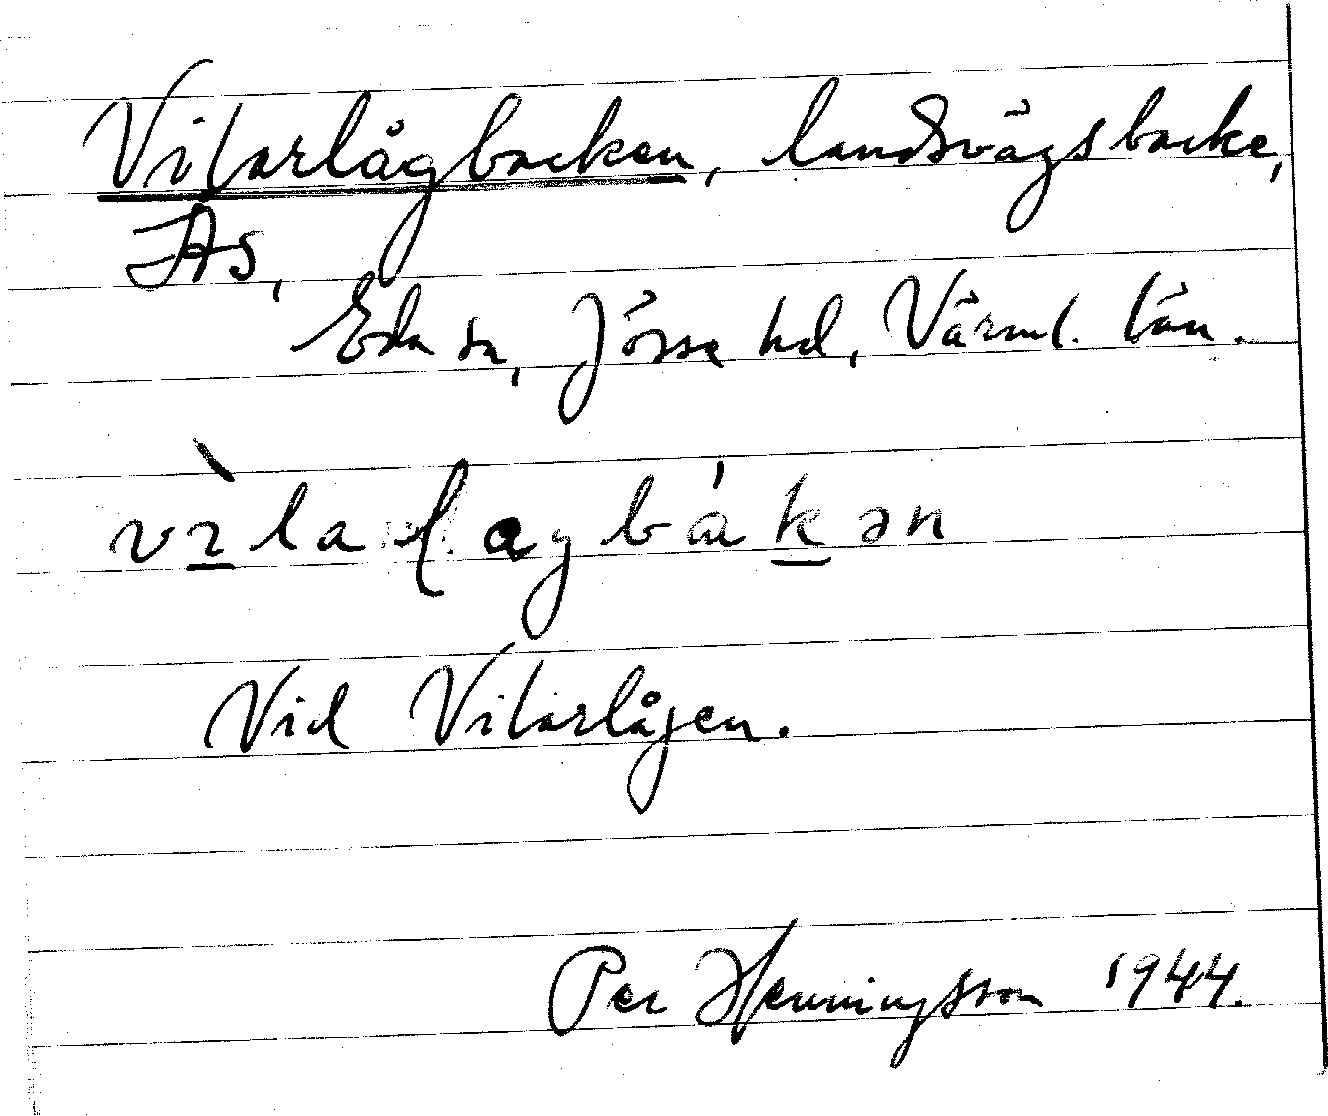 Vilarlågbacken, landsvägsbacke,
Ås,
Eda sn, Jösse hd, Värml. län.
vìlaɭagbákən
Vid Vilarlågen.
Per Henningsson 1944.